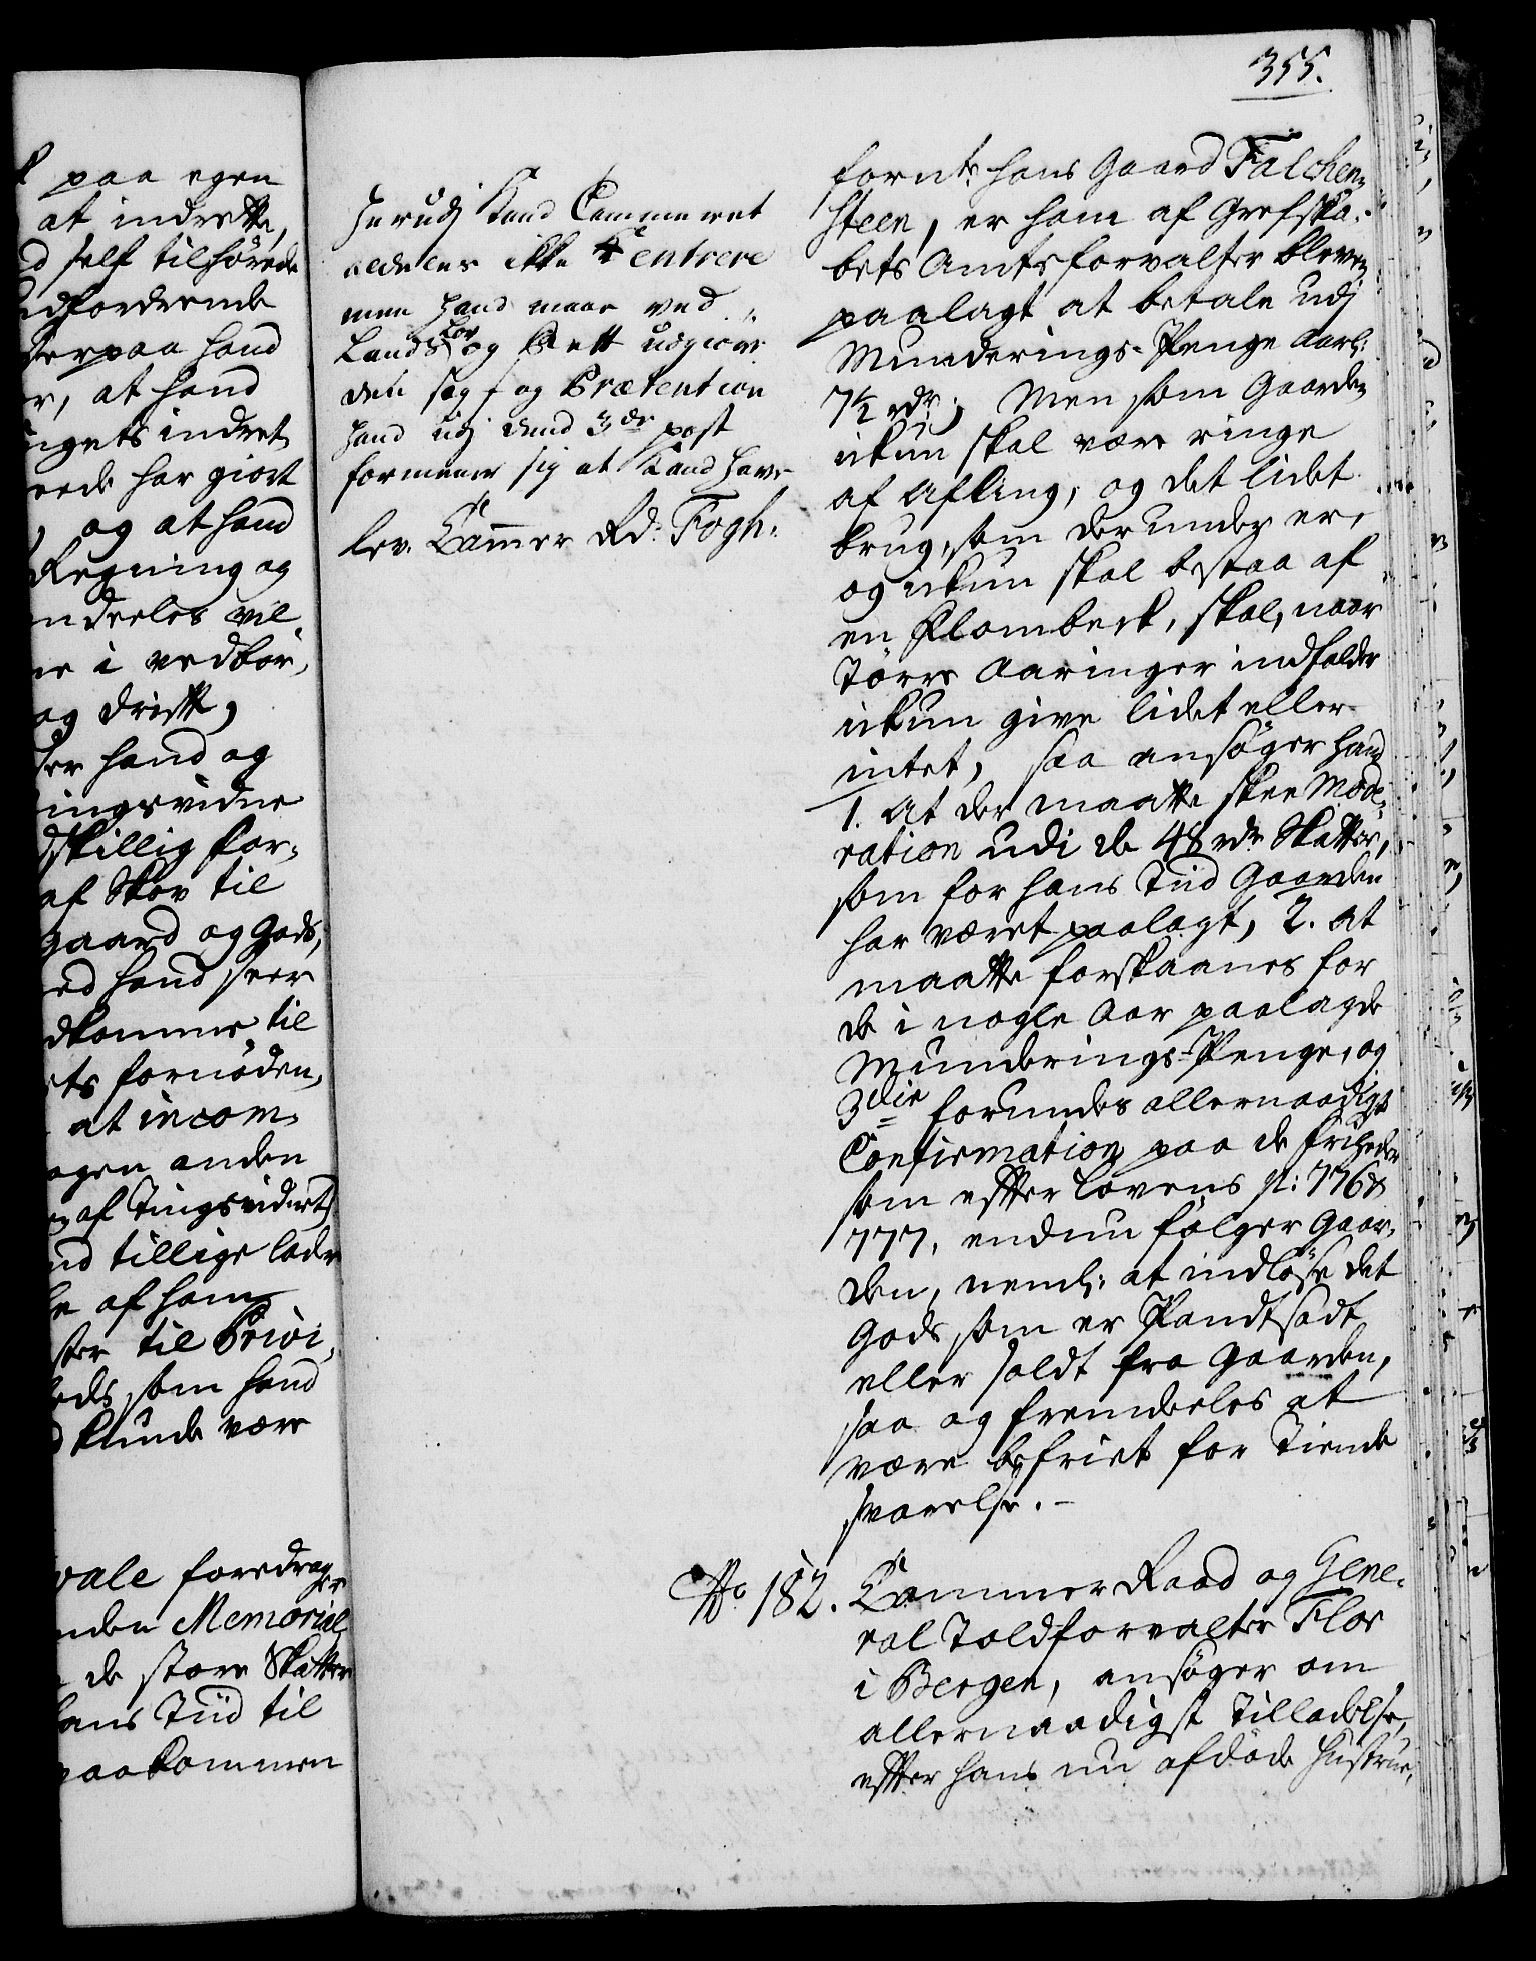 355.
paa egen
at indrette,
self tilhørede
udfordrende
derpaa hand
r, at hand
ngets indret,
rede har giort
, og at hand
Regning og
ndeeles vil
ne i vedbør,
og drift,
der hand og
ingsvidne
dskillig for,
af Skov til
gaard og Gods,
ed hand seer
dkomme til
ets fornøden,
at incom,
ogen anden
af Tingsvidnet
nd tillige lade
e af ham
ster til Privi,
eds, som hand
kunde være
vale foredrager
nden Memorial
de store Skatter
hans Tiid til
paakommen
Herudj Kand Cammeret
aldeles ikke entrere
men hand maae ved
Lands Lov og Rett udgiøre
den sag og Prætention
hand udj dend 3de post
formeener sig at Kand have
lev. Cammer Rd. Fogh.
fornte hans Gaard Falchen,
steen, er ham af Grefska,
bets Amtsforvalter bleven
paalagt at betale udj
Munderings-Penge Aarl:
7½ rdr; Men som Gaarden
ickun skal være ringe
af Afling, og det lidet
brug, som derunder er,
og ickun skal bestaa af
en Flombeck, skal, naar
Tørre Aaringer indfalder
ickun give lidet eller
intet, saa ansøger hand
1. At der maatte skee Mode,
ration udi de 48 rdr Skatter,
som for hans Tiid Gaarden
har været paalagt, 2. at
maatte forskaanes for
de i nogle Aar paalagde
Munderings-Penge, og
3die forundes allernaadigst
Confirmation paa de friheder
som efter Lovens p: 776 &
777, endnu følger Gaar,
den, neml: at indløse det
Gods som er Pandtsadt
eller soldt fra Gaarden,
saa og fremdeeles at
være befriet for Tiende
svarelse. -
No 182. Cammer Raad og Gene,
ral Toldforvalter Flor
i Bergen, ansøger om
allernaadigst Tilladelse,
efter hans nu afdøde Hustrue,